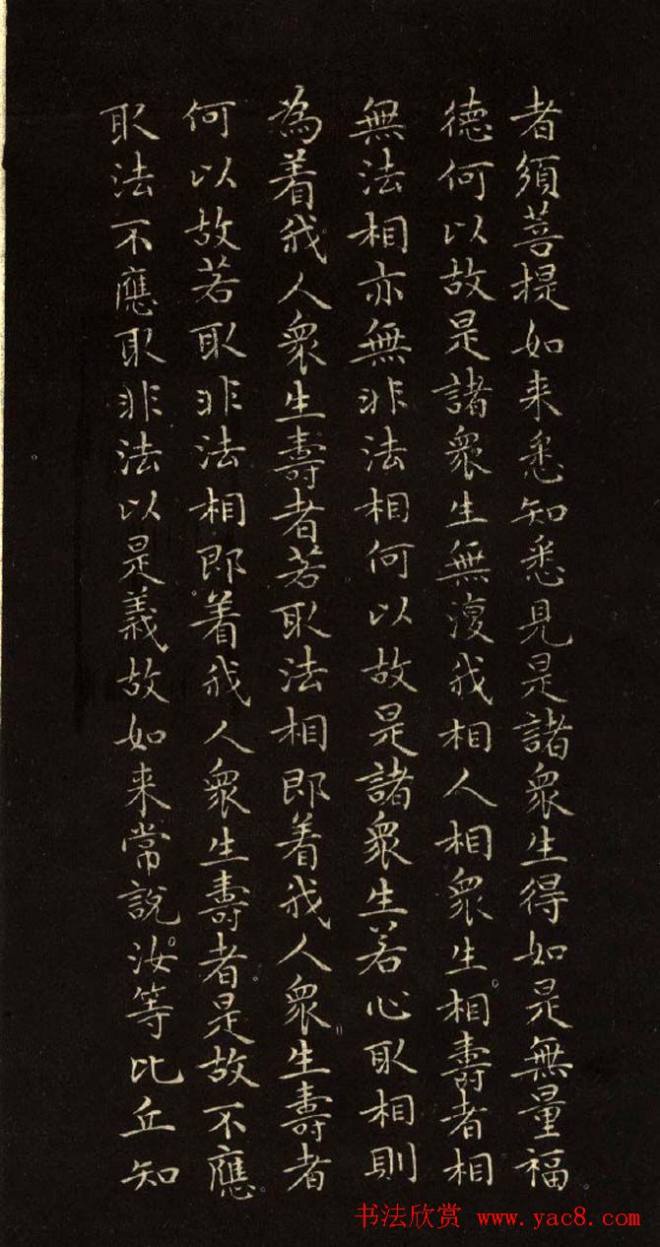 者須菩提如来悉知悉見是諸衆生得如是無量福
德何以故是諸衆生無復我相人相衆生相壽者相
無法相亦無非法相何以故是諸衆生若心取相則
為着我人衆生壽者若取法相即着我人衆生壽者
何以故若取非法相即着我人衆生壽者是故不應
取法不應取非法以是義故如来常說汝等比丘知
书法欣赏 www.yac8.com